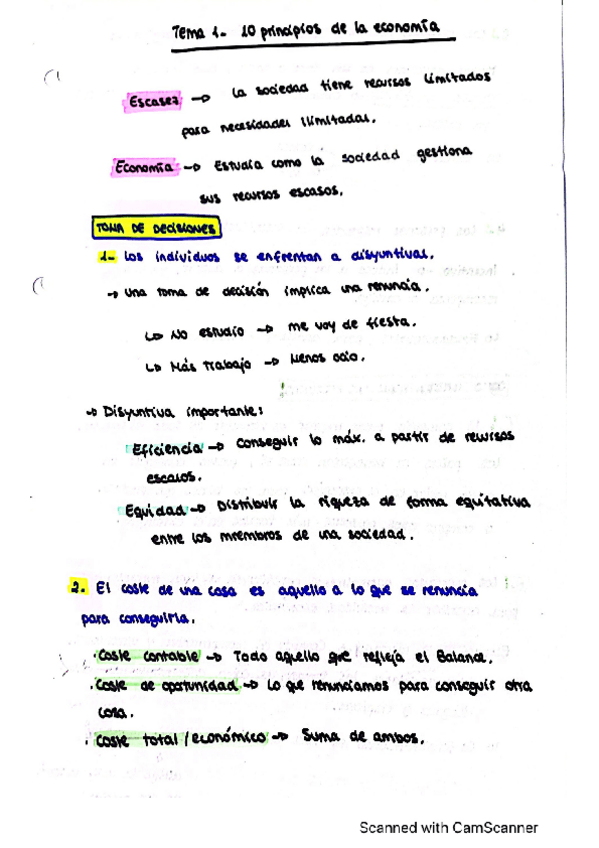 Tema 1.- 10 principios de la economía
Escasez → La sociedad tiene recursos limitados
para necesidades ilimitadas.
Economía → Estudia como la sociedad gestiona
sus recursos escasos.
TOMA DE DECISIONES
1.- Los individuos se enfrentan a disyuntivas.
→ Una toma de decisión implica una renuncia.
↳ No estudio → me voy de fiesta.
↳ Más trabajo → Menos ocio.
→ Disyuntiva importante:
Eficiencia → Conseguir lo máx. a partir de recursos
escasos.
Equidad → Distribuir la riqueza de forma equitativa
entre los miembros de una sociedad.
2. El coste de una cosa es aquello a lo que se renuncia
para conseguirla.
· Coste contable → Todo aquello que refleja el Balance.
· Coste de oportunidad → Lo que renunciamos para conseguir otra
cosa.
· Coste total / económico → Suma de ambos.
Scanned with CamScanner